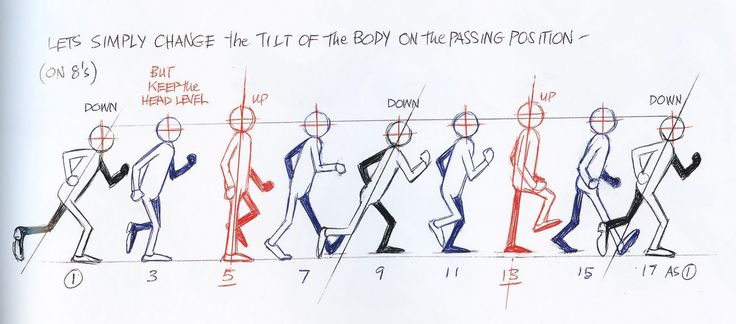 LETS SIMPLY CHANGE the TILT OF the BODY ON the PASSING POSITION –
(ON 8's)
BUT
KEEP the
HEAD LEVEL
DOWN
UP
DOWN
UP
DOWN
1 3 5 7 9 11 13 15 17 AS 1